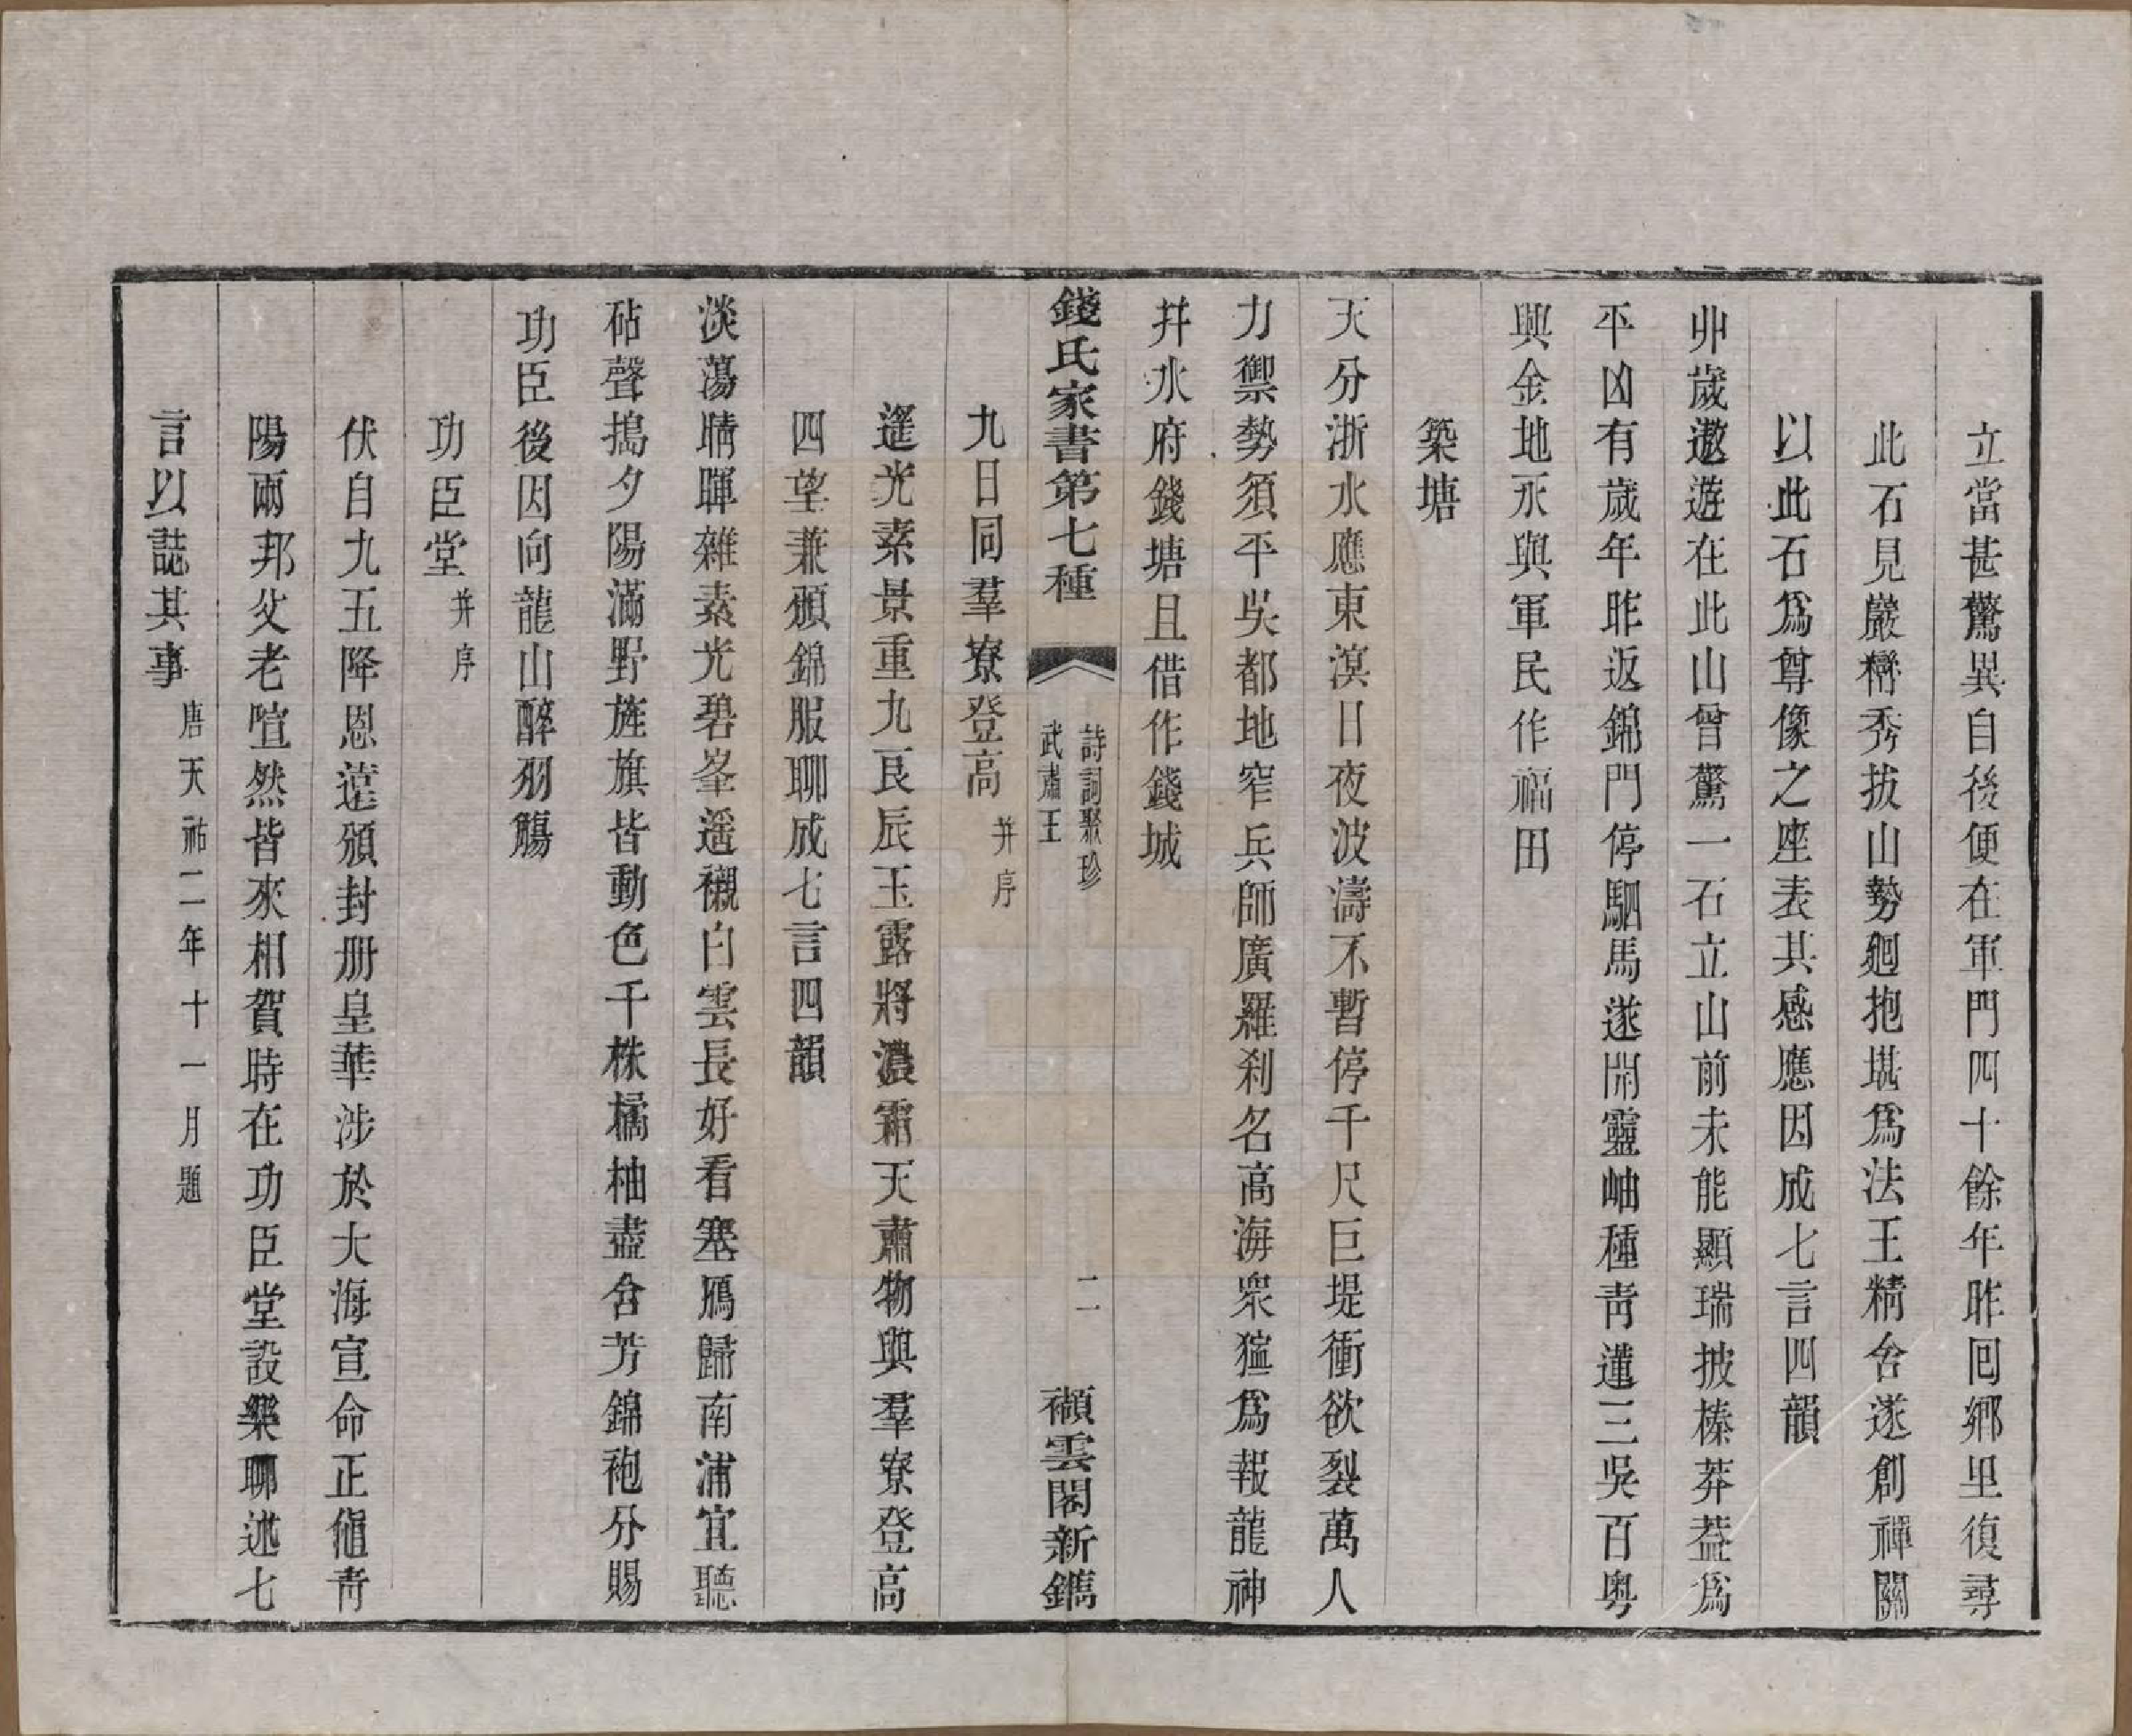 立當甚驚異自後便在軍門四十餘年昨囘鄉里復尋
此石見巖巒秀拔山勢廻抱堪爲法王精舍遂創禪關
以此石爲尊像之座表其感應因成七言四韻
丱歲遨遊在此山曾驚一石立山前未能顯瑞披榛莽葢爲
平凶有歲年昨返錦門停駟馬遂開靈岫種靑蓮三吳百粤
興金地永與軍民作福田
築塘
天分浙水應東溟日夜波濤不暫停千尺巨堤衝欲裂萬人
力禦勢須平吳都地窄兵師廣羅刹名高海衆獰爲報龍神
幷水府錢塘且借作錢城
錢氏家書第七種
詩詞聚珍
武肅王
二一
襭雲閣新鐫
九日同羣寮登高幷序
遙光素景重九良辰玉露將濃霜天肅物與羣寮登高
四望兼頒錦服聊成七言四韻
淡蕩晴暉雜素光碧峯遥襯白雲長好看塞鴈歸南浦宜聽
砧聲搗夕陽滿野旌旗皆動色千株橘柚盡含芳錦袍分賜
功臣後因向龍山醉羽觴
功臣堂幷序
伏自九五降恩遠頒封册皇華涉於大海宣命正値靑
陽兩邦父老喧然皆來相賀時在功臣堂設樂聊述七
言以誌其事唐天祐二年十一月題